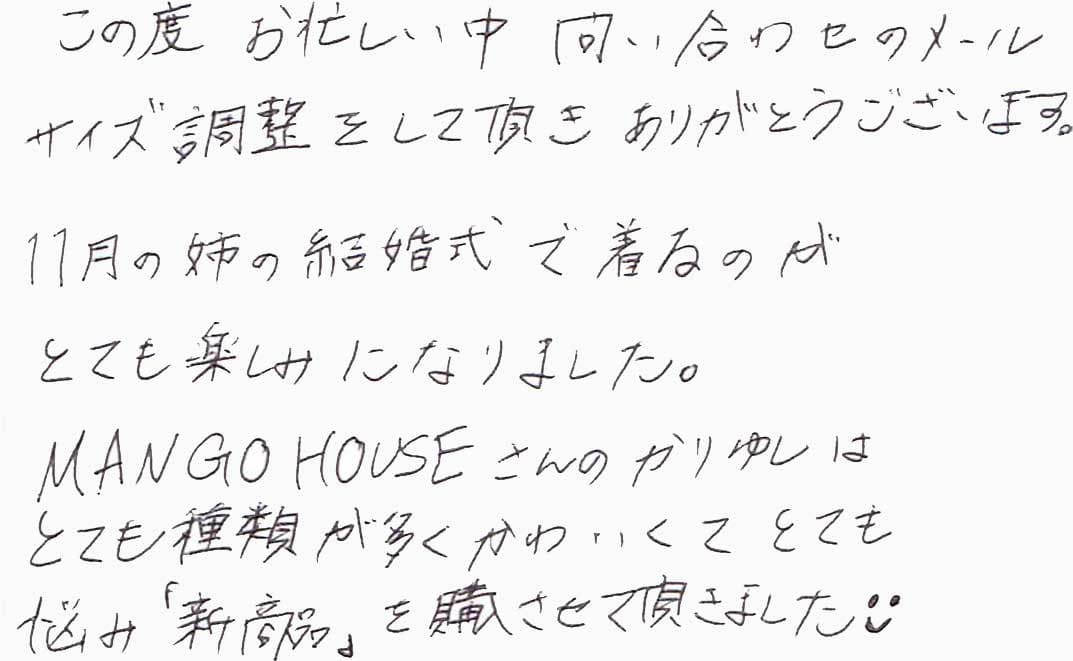 この度 お忙しい中 問い合わせのメール
サイズ調整をして頂き ありがとうございます。
11月の姉の結婚式で着るのが
とても楽しみになりました。
MANGO HOUSEさんのかりゆしは
とても種類が多くかわいくて とても
悩み「新商品」を購入させて頂きました